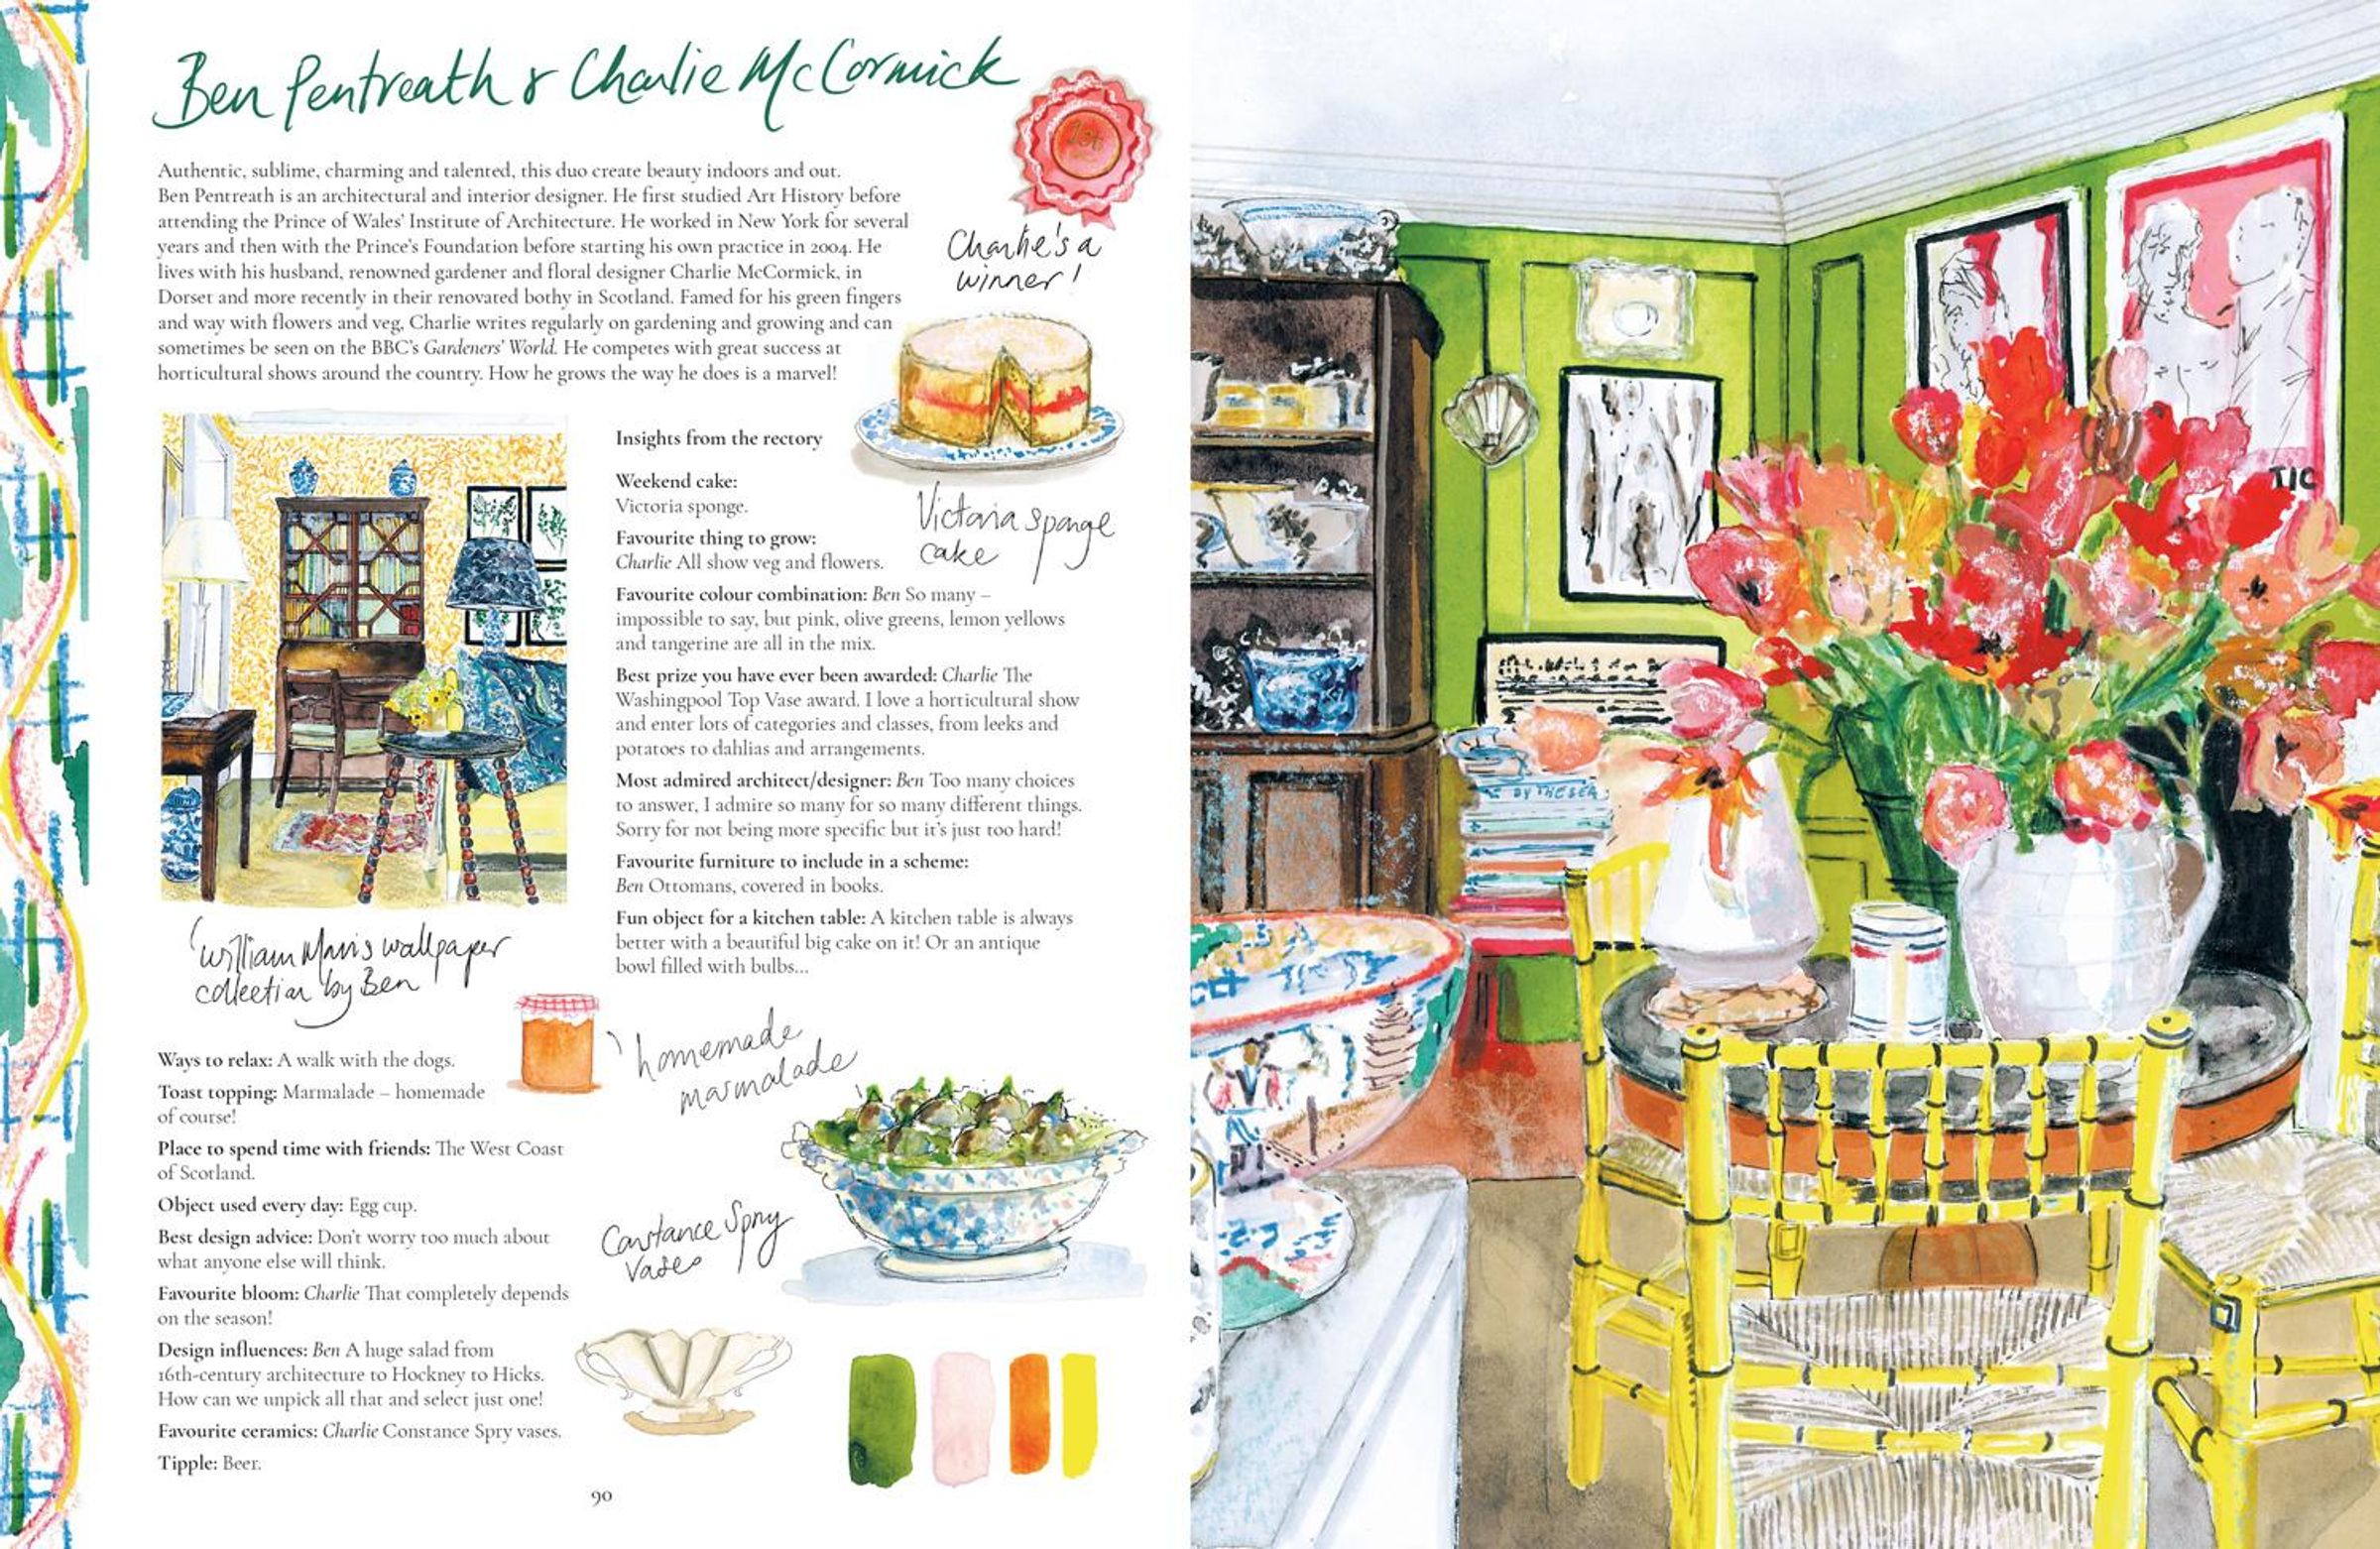 Ben Pentreath & Charlie McCormick
1st
Charlie's a
winner!
Authentic, sublime, charming and talented, this duo create beauty indoors and out.
Ben Pentreath is an architectural and interior designer. He first studied Art History before
attending the Prince of Wales' Institute of Architecture. He worked in New York for several
years and then with the Prince's Foundation before starting his own practice in 2004. He
lives with his husband, renowned gardener and floral designer Charlie McCormick, in
Dorset and more recently in their renovated bothy in Scotland. Famed for his green fingers
and way with flowers and veg, Charlie writes regularly on gardening and growing and can
sometimes be seen on the BBC's Gardeners' World. He competes with great success at
horticultural shows around the country. How he grows the way he does is a marvel!
Victoria sponge
cake
William Morris wallpaper
collection by Ben
Insights from the rectory
Weekend cake:
Victoria sponge.
Favourite thing to grow:
Charlie All show veg and flowers.
Favourite colour combination: Ben So many –
impossible to say, but pink, olive greens, lemon yellows
and tangerine are all in the mix.
Best prize you have ever been awarded: Charlie The
Washingpool Top Vase award. I love a horticultural show
and enter lots of categories and classes, from leeks and
potatoes to dahlias and arrangements.
Most admired architect/designer: Ben Too many choices
to answer, I admire so many for so many different things.
Sorry for not being more specific but it's just too hard!
Favourite furniture to include in a scheme:
Ben Ottomans, covered in books.
Fun object for a kitchen table: A kitchen table is always
better with a beautiful big cake on it! Or an antique
bowl filled with bulbs...
homemade
marmalade
Ways to relax: A walk with the dogs.
Toast topping: Marmalade – homemade
of course!
Place to spend time with friends: The West Coast
of Scotland.
Object used every day: Egg cup.
Best design advice: Don't worry too much about
what anyone else will think.
Favourite bloom: Charlie That completely depends
on the season!
Design influences: Ben A huge salad from
16th-century architecture to Hockney to Hicks.
How can we unpick all that and select just one!
Favourite ceramics: Charlie Constance Spry vases.
Tipple: Beer.
Constance Spry
vases
90
TIC
BY THE SEA